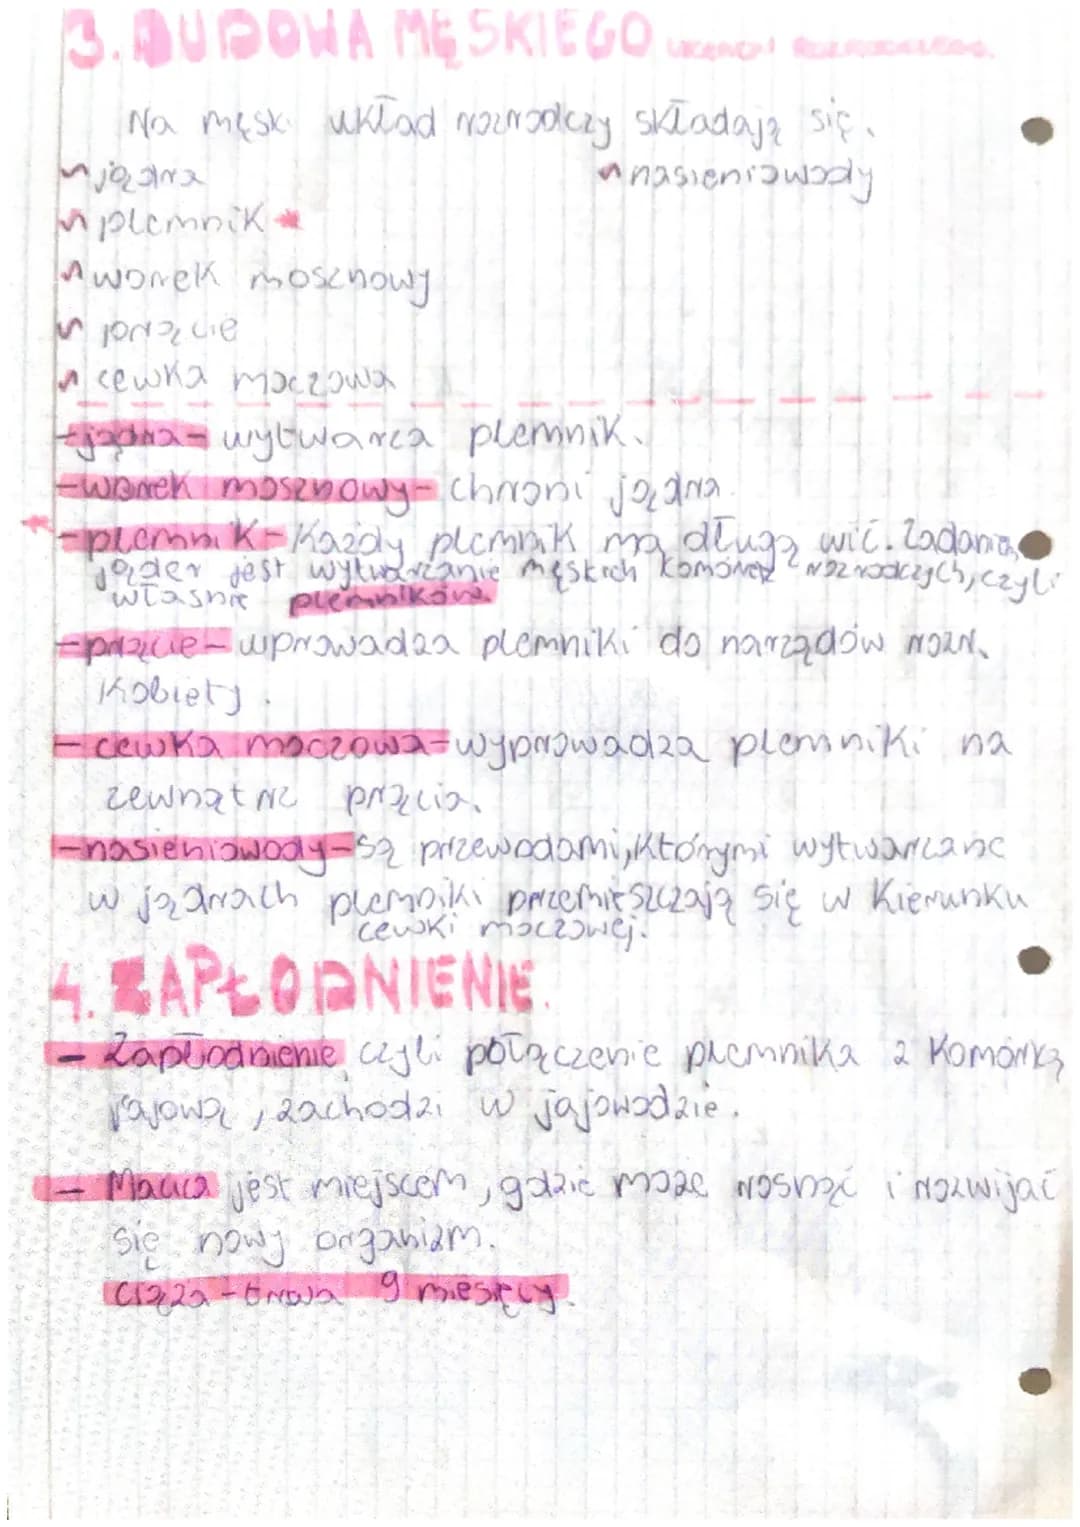 3. BUDOWA MĘSKIEGO UKŁADU ROZRODCZEGO.
Na męski układ rozrodczy składają się.
jądra
nasieniowody
plemnik *
worek mosznowy
prącie
cewka moczowa
- jądra - wytwarza plemnik.
- worek mosznowy - chroni jądra.
* - plemnik - Każdy plemnik ma długą wić. Zadaniem
jąder jest wytwarzanie męskich komórek rozrodczych, czyli
własnie plemników.
- prącie - wprowadza plemniki do narządów rozr.
Kobiety.
- cewka moczowa - wyprowadza plemniki na
zewnątrz prącia.
- nasieniowody - są przewodami, którymi wytwarzane
w jądrach plemniki przemieszczają się w kierunku
cewki moczowej.
4. ZAPŁODNIENIE.
- Zapłodnienie, czyli połączenie plemnika z komórką
jajową, zachodzi w jajowodzie.
- Macica jest miejscem, gdzie może rosnąć i rozwijać
się nowy organizm.
Ciąża - trwa 9 miesięcy.